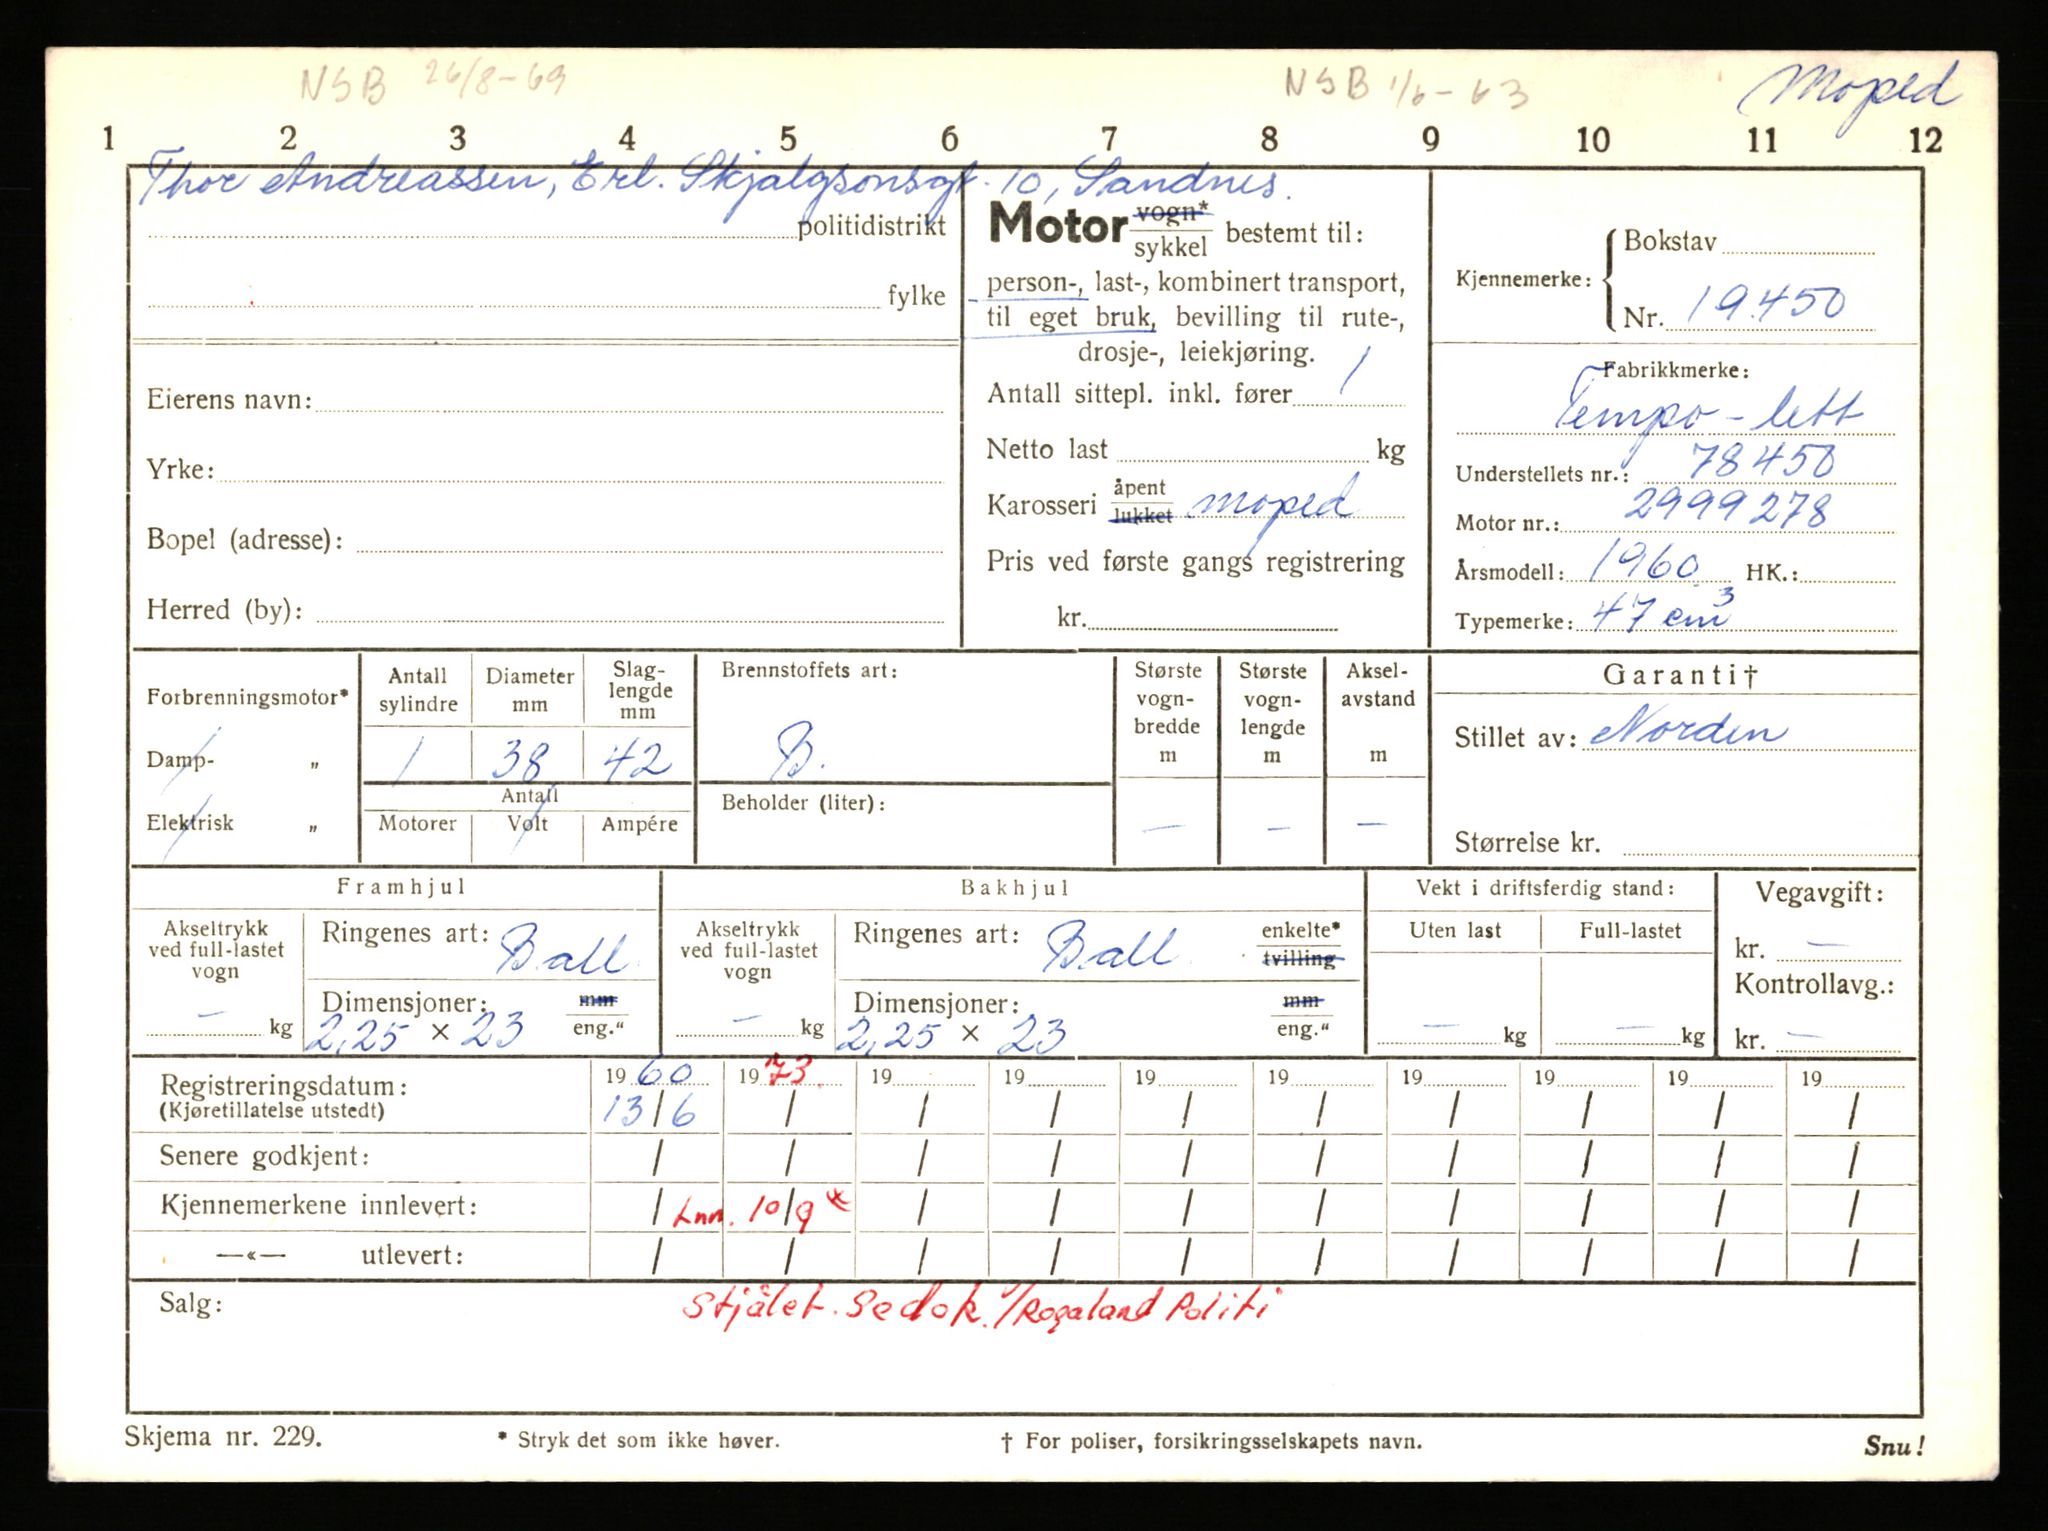 NSB 26/8-69 NSB 1/6-63 Moped
1 2 3 4 5 6 7 8 9 10 11 12
Thor Andreassen, Erl. Skjalgsonsgt. 10, Sandnes.
politidistrikt
fylke
Eierens navn:
Yrke:
Bopel (adresse):
Herred (by):
Motor vogn*
sykkel bestemt til:
person-, last-, kombinert transport,
til eget bruk, bevilling til rute-,
drosje-, leiekjøring.
Antall sittepl. inkl. fører 1
Netto last kg
Karosseri åpent
lukket moped
Pris ved første gangs registrering
kr.
Kjennemerke: Bokstav
Nr. 19450
Fabrikkmerke:
Tempo-lett
Understellets nr.: 78450
Motor nr.: 2999278
Årsmodell: 1960 HK.:
Typemerke: 47 cm³
Forbrenningsmotor*
Damp- „
Elektrisk „
Antall sylindre
1
Diameter mm
38
Slag-lengde mm
42
Antall
Motorer Volt Ampére
Brennstoffets art:
B.
Beholder (liter):
Største vogn-bredde m
—
Største vogn-lengde m
—
Aksel-avstand m
—
Garanti†
Stillet av: Norden
Størrelse kr.
Framhjul
Akseltrykk ved full-lastet vogn
— kg
Ringenes art: Ball
Dimensjoner: mm
2,25 × 23 eng."
Bakhjul
Akseltrykk ved full-lastet vogn
— kg
Ringenes art: Ball enkelte*
tvilling
Dimensjoner: mm
2,25 × 23 eng."
Vekt i driftsferdig stand:
Uten last Full-lastet
— kg — kg
Vegavgift:
kr. —
Kontrollavg.:
kr. —
Registreringsdatum: 1960 1973. 19 19 19 19 19 19 19 19
(Kjøretillatelse utstedt) 13/6 / / / / / / / / /
Senere godkjent: / / / / / / / / / /
Kjennemerkene innlevert: / Inn. 10/9 * / / / / / / / /
—«— utlevert: / / / / / / / / / /
Salg: Stjålet. Se dok. f/Rogaland Politi
Skjema nr. 229. * Stryk det som ikke høver. † For poliser, forsikringsselskapets navn. Snu!